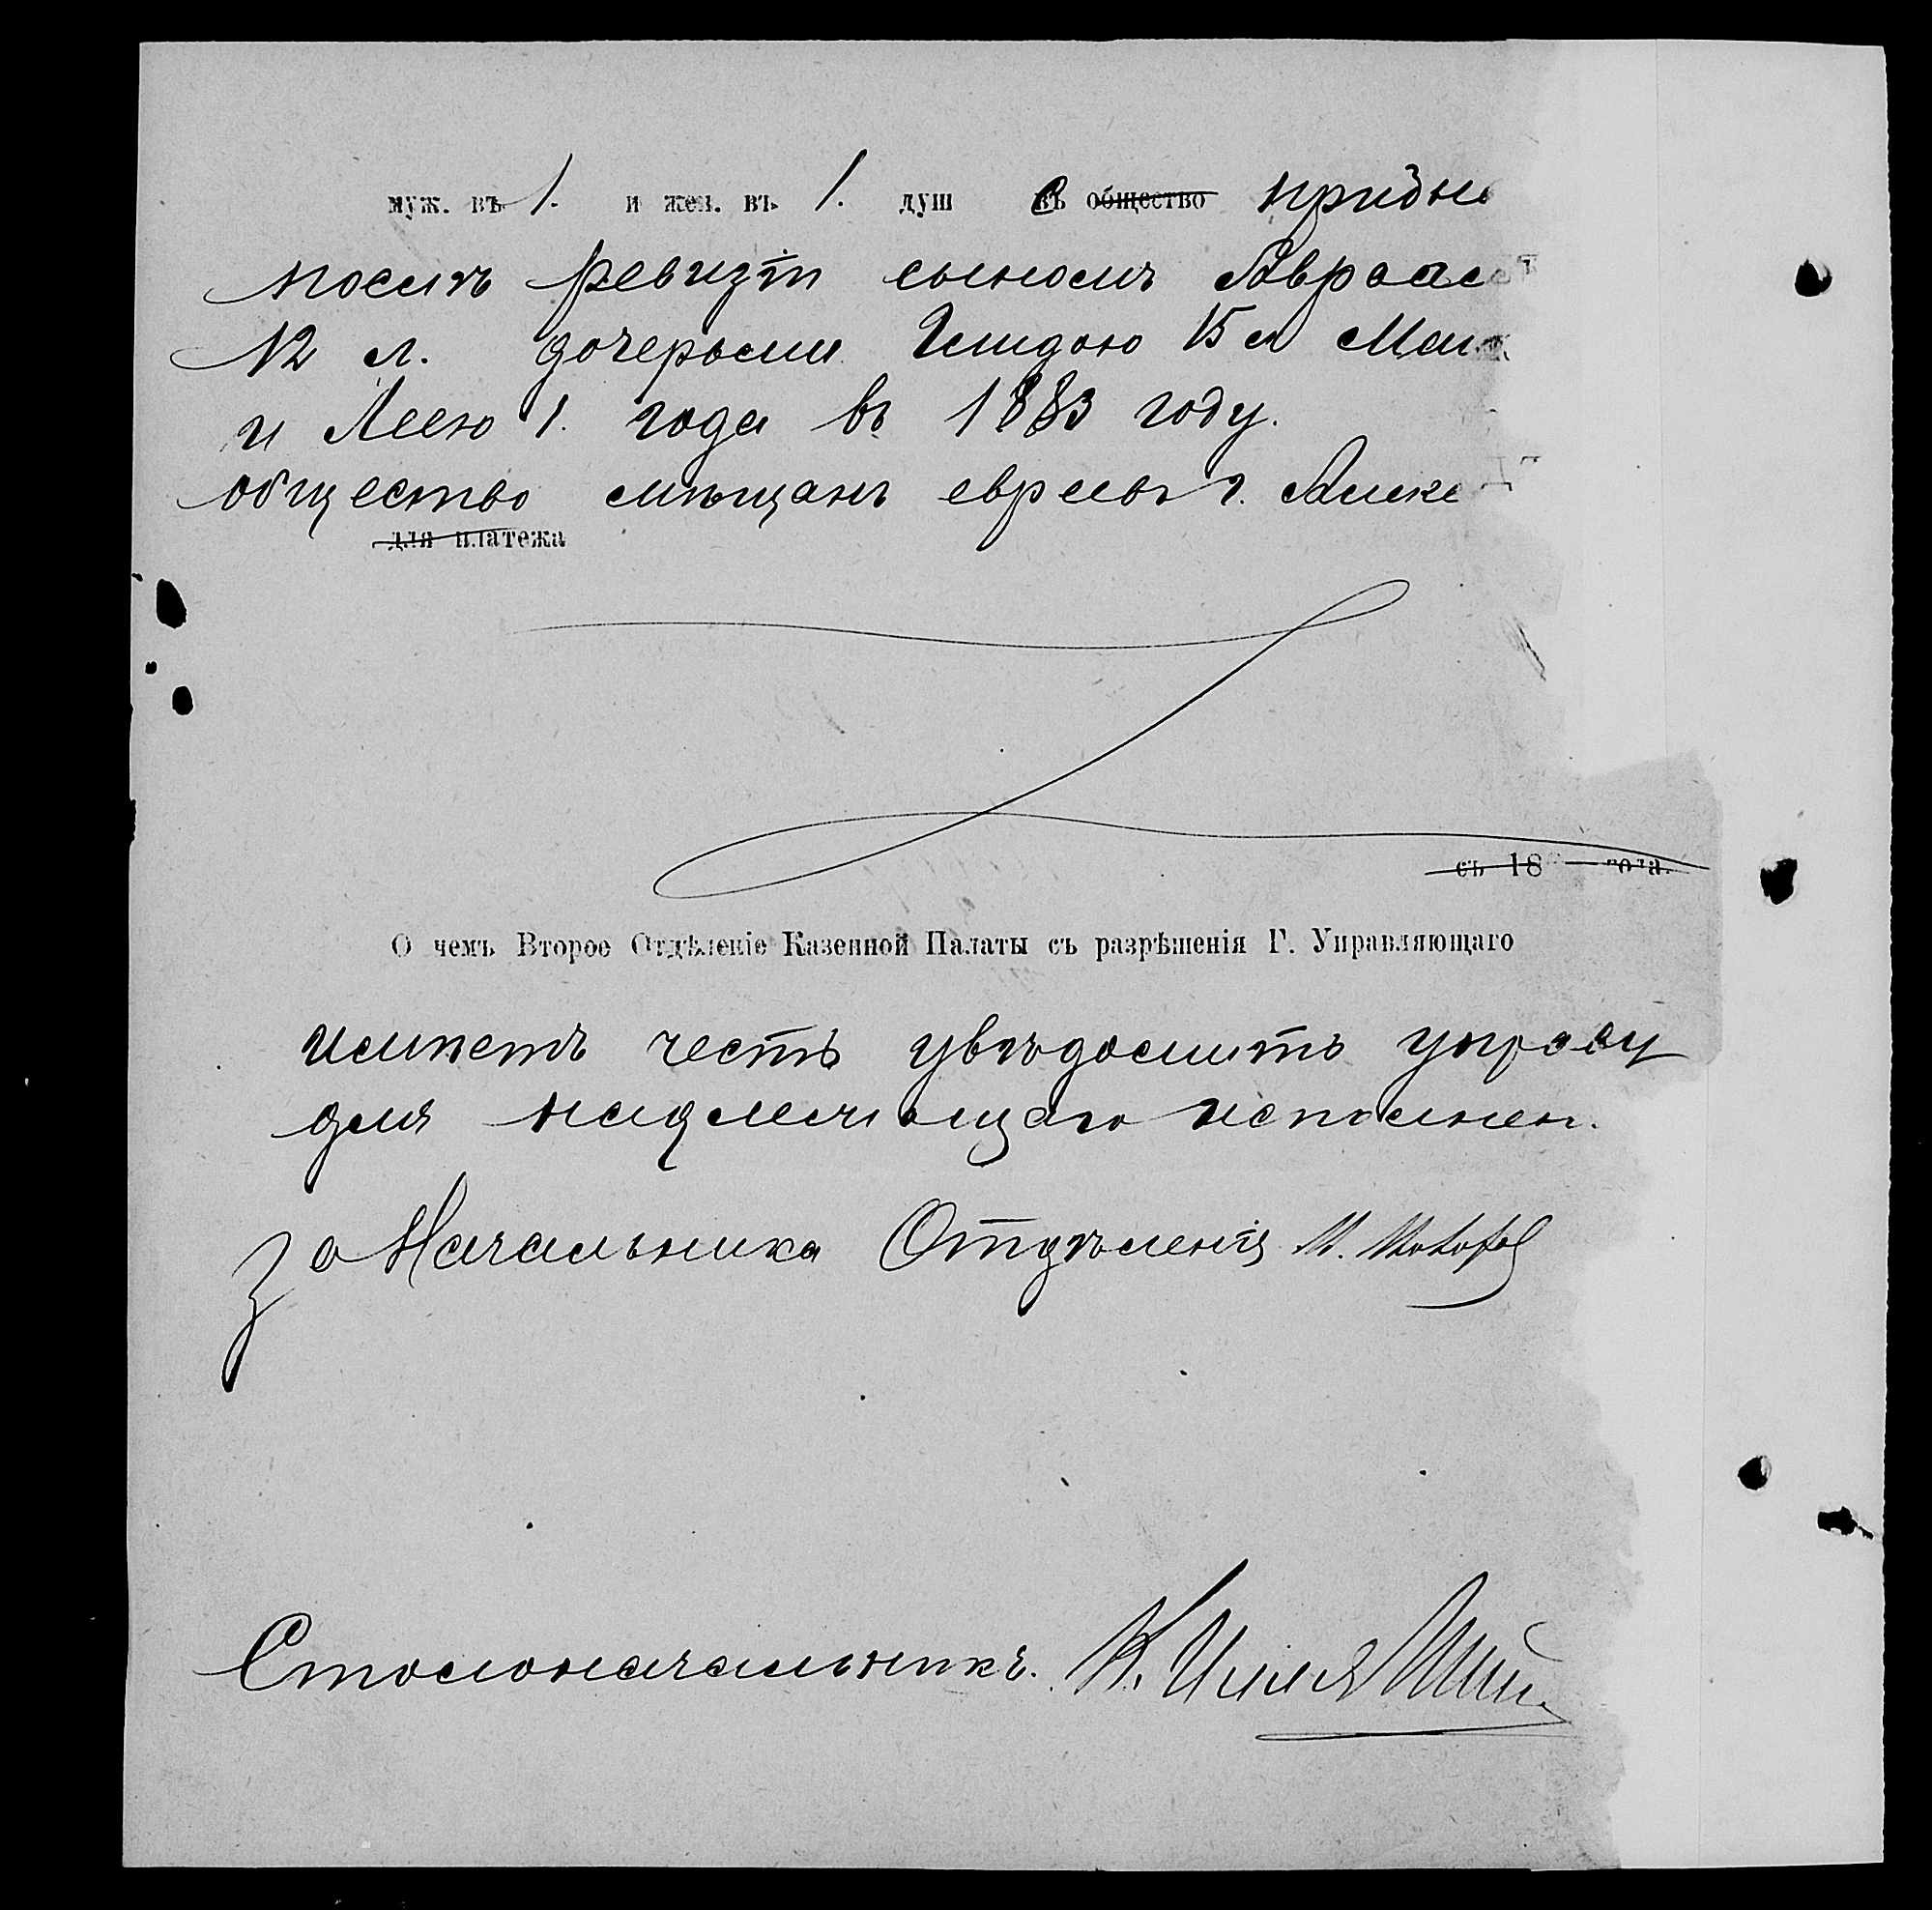 муж. въ 1. и жен. въ 1. душ съ общество придне
посли ревизіи сыномъ Авраам
12 л. дочерьми 15 л
и Леею 1. года въ 1883 году.
общество мѣщанъ евреевъ г. Алекс
для платежа
съ 18 года.
О чемъ Второе Отдѣленіе Казенной Палаты съ разрѣшенія Г. Управляющаго
имѣетъ честь увѣдомить управу
для надлежащаго исполнен.
За Начальника Отдѣленія
Столоначальникъ.